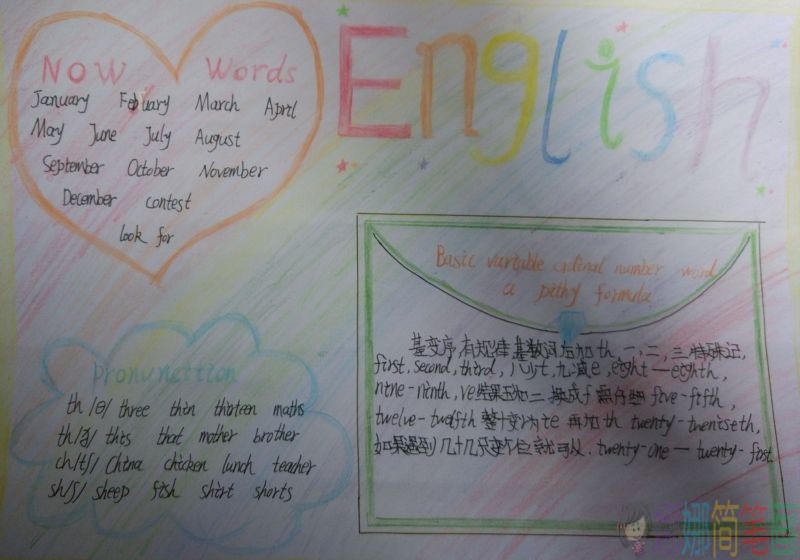 English
Now Words
January Febuary March April
May June July August
September October November
December contest
look for
Basic variable ordinal number word
a pithy formula
基变序,有规律,基数词后加th 一,二,三特殊记,
first, second, third, 八少t,九减e, eight—eighth,
nine-ninth, ve结尾 f five-fifth,
twelve-twelfth 整十变y为ie 再加th twenty-twentieth,
如果遇到几十几只变个位就可以. twenty-one — twenty-first
pronunction
th /θ/ three thin thirteen maths
th/ð/ this that mother brother
ch/tʃ/ China chicken lunch teacher
sh/ʃ/ sheep fish shirt shorts
娜简笔画